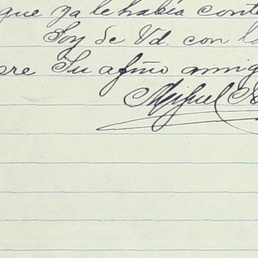 que ya le había conte
Soy de Vd. con la
bre Su afmo amig
Miguel